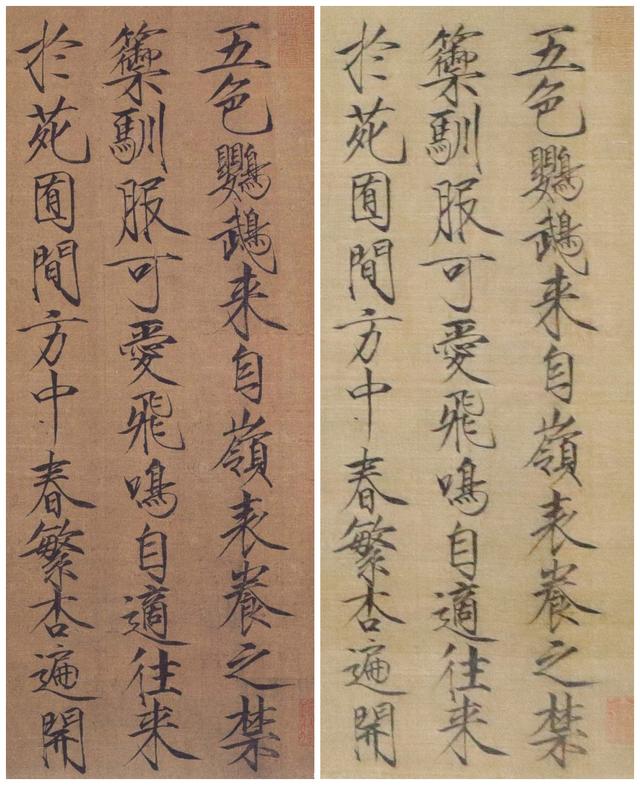 五色鸚鵡来自嶺表養之禁
籞馴服可愛飛鳴自適往来
於苑囿間方中春繁杏遍開
五色鸚鵡来自嶺表養之禁
籞馴服可愛飛鳴自適往来
於苑囿間方中春繁杏遍開